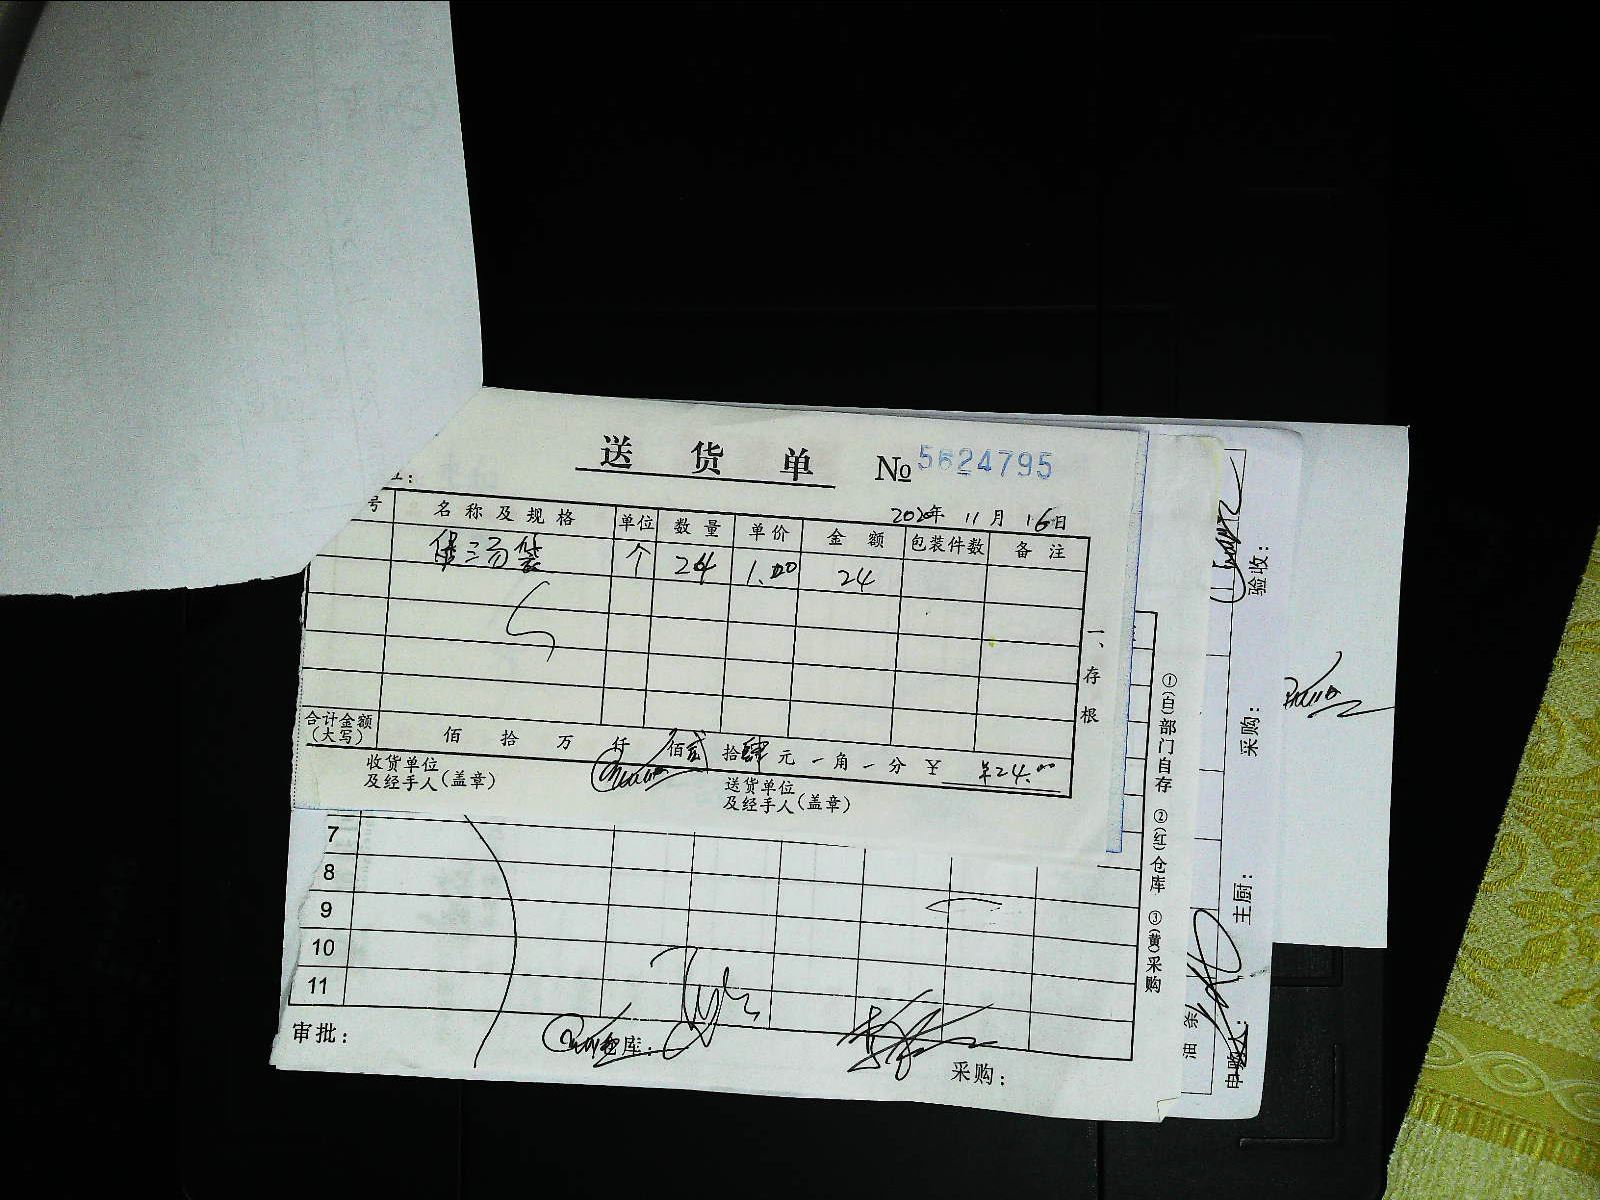 送货单 № 5624795
2020年 11月 16日
号 名称及规格 单位 数量 单价 金额 包装件数 备注
煲汤袋 个 24 1.00 24
合计金额(大写) 佰 拾 万 仟 佰 贰拾肆元 一角 一分 ¥ ¥24.00
收货单位及经手人(盖章)
送货单位及经手人(盖章)
一、存根
7
8
9
10
11
审批:
库:
采购:
①(白)部门自存 ②(红)仓库 ③(黄)采购
验收:
采购:
主厨:
申购人:
油